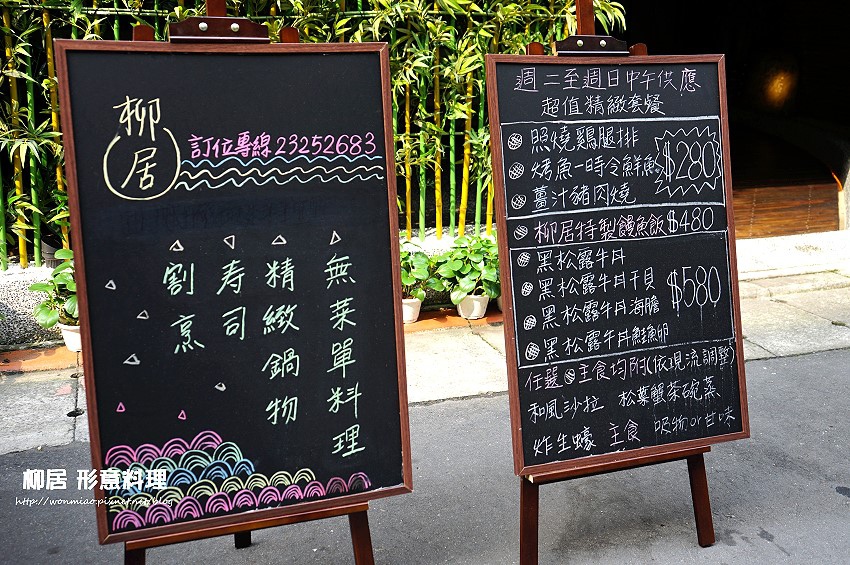 柳居
訂位專線23252683
無菜單料理
精緻鍋物
寿司
割烹
週二至週日中午供應
超值精緻套餐
照燒鷄腿排
烤魚一時令鮮魚
薑汁豬肉燒
$280
柳居特製饅魚飯$480
黑松露牛丹
黑松露牛丹干貝
黑松露牛丹海膽
黑松露牛丹鮭魚卵
$580
任選 主食均附(依現流調整)
和風沙拉 松葉蟹茶碗蒸
炸生蠔 主食 吸物or甘味
柳居 形意料理
http://wonmiao.pixnet.net/blog